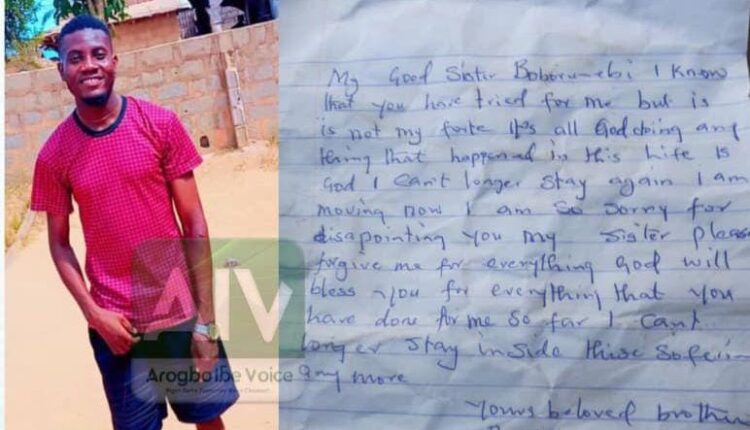 My Good Sister Boborumebi I Know
that you have tried for me but is
is not my forte It's all God doing any
thing that happened in this Life Is
God I Can't longer stay again I am
moving now I am so sorry for
disapointing you my sister please
forgive me for everything God will
bless you for everything that you
have done for me so far I can't
longer stay inside these
any more
Yours beloved brother
AIV
Arogboibe Voice